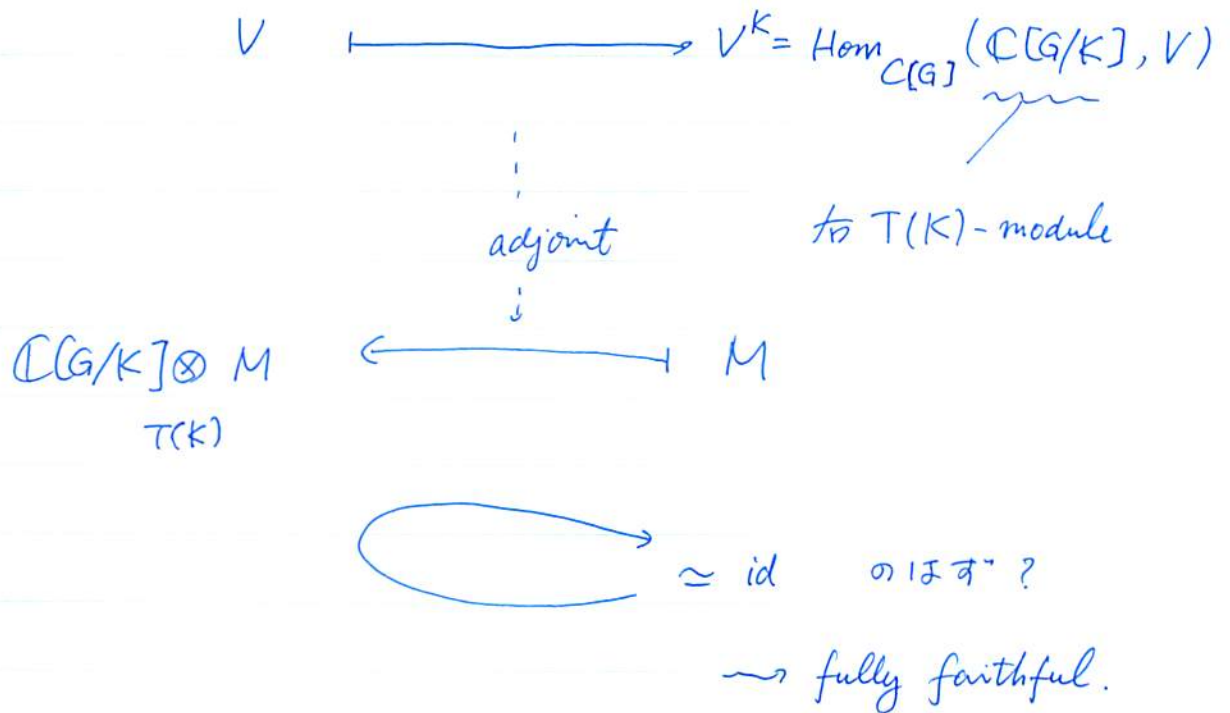 V ⟼ V^K = Hom_{C[G]} (ℂ[G/K], V)
adjoint
右 T(K)-module
ℂ[G/K] ⊗_{T(K)} M ⟻ M
≃ id のはず?
⇝ fully faithful.